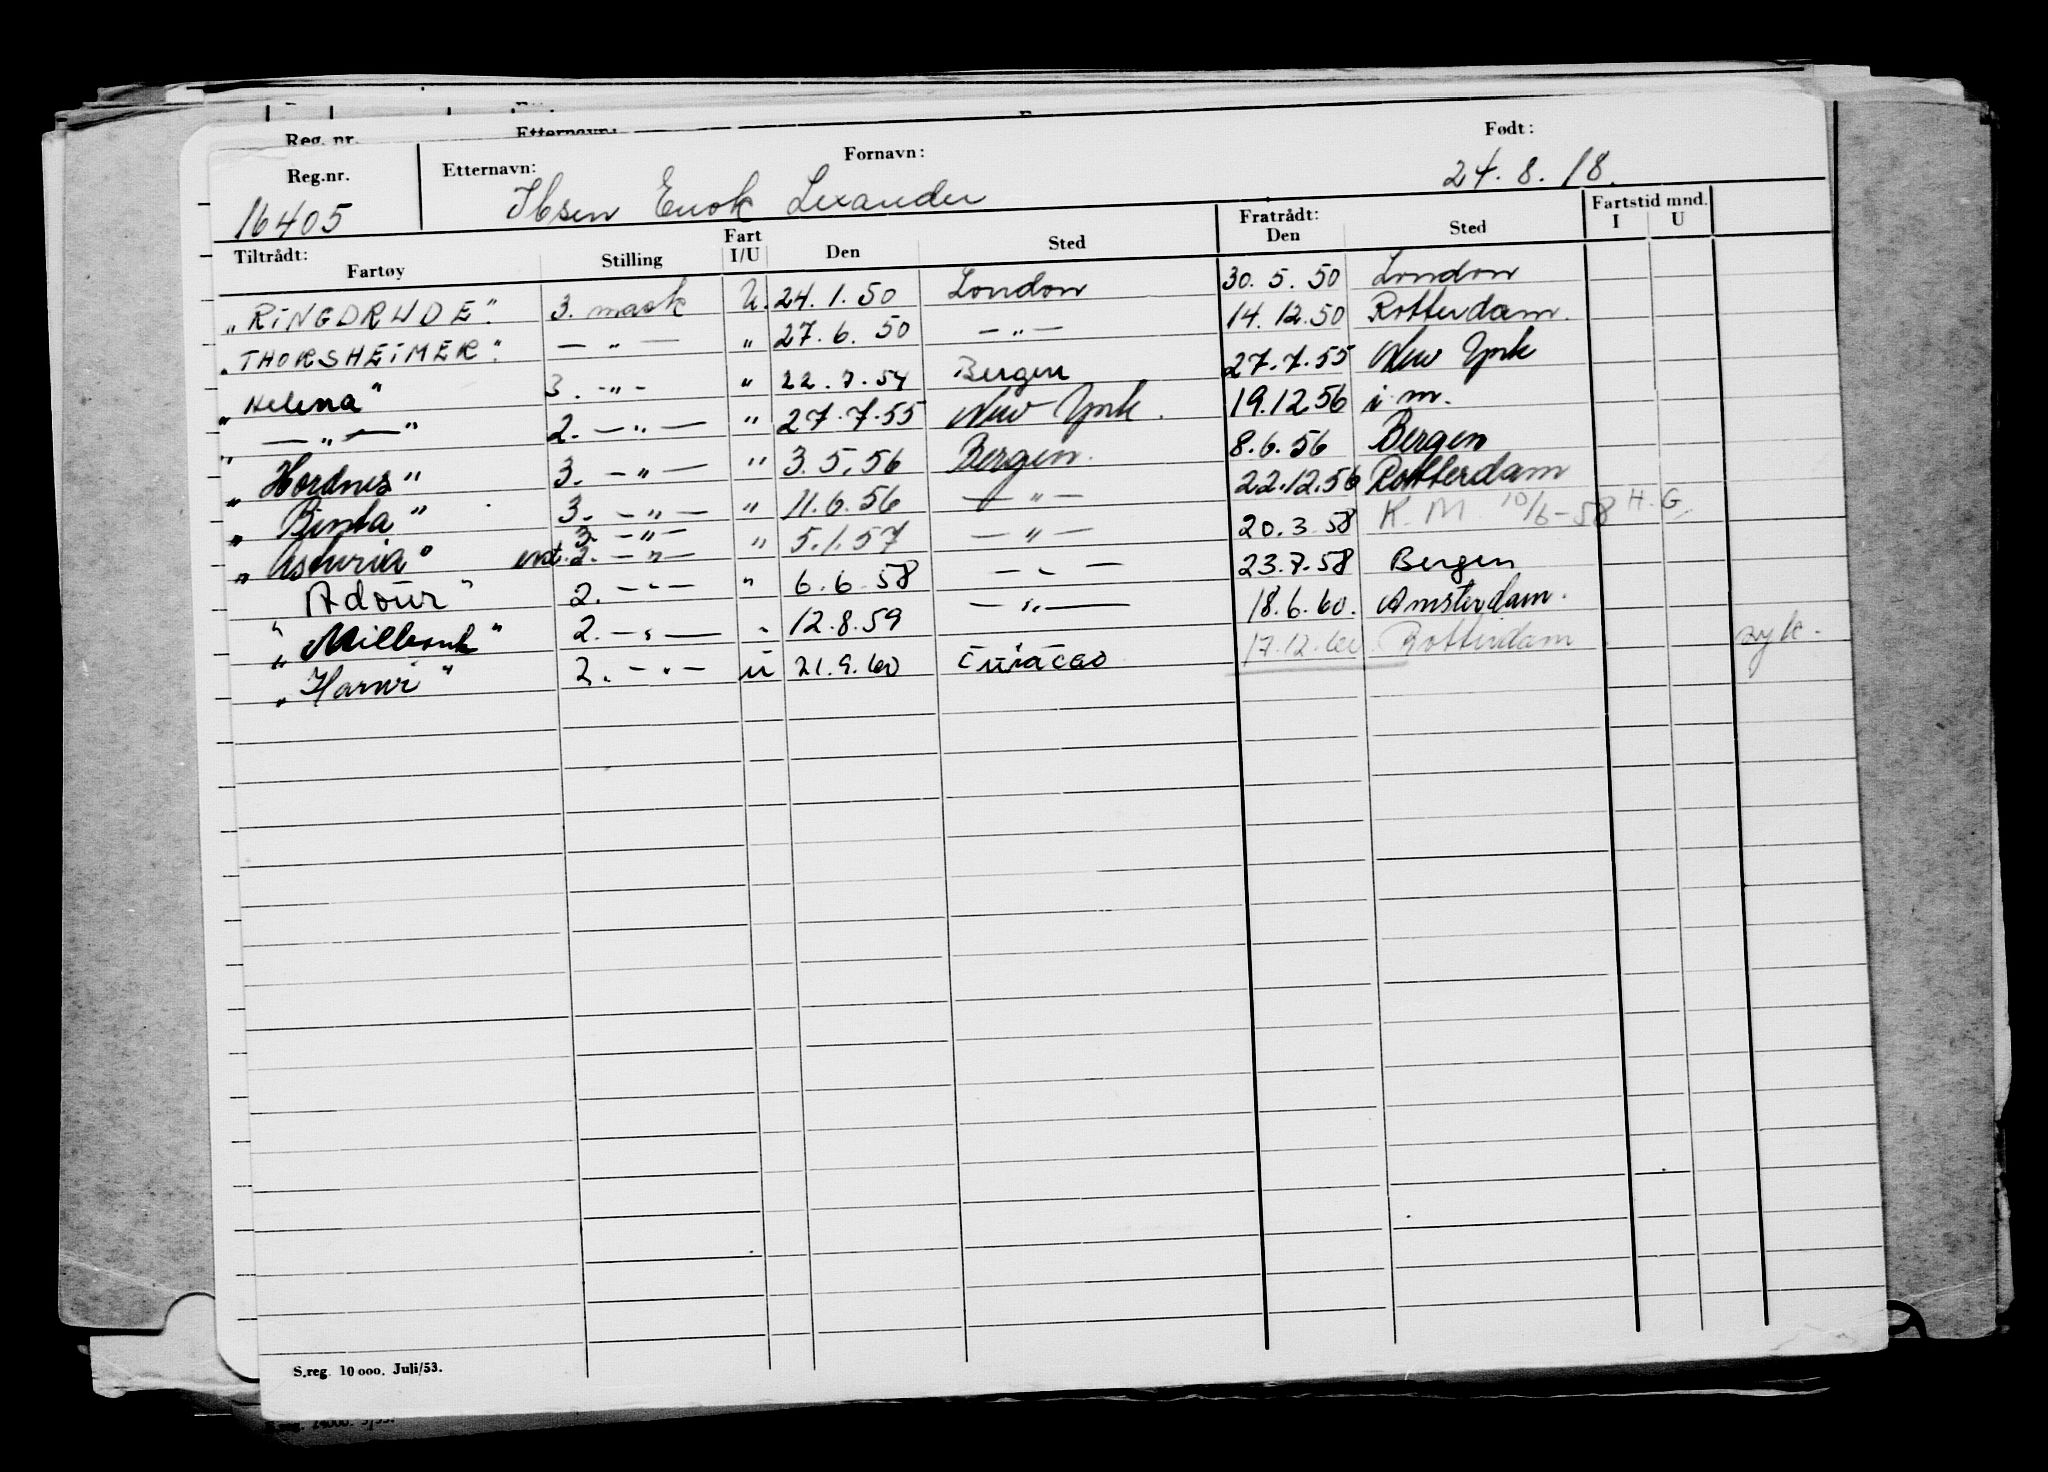 Reg. nr.
Reg.nr. Etternavn: Fornavn: Født:
16405 Ibsen Enok Lexander 24.8.18.
Tiltrådt: Fartøy Stilling Fart I/U Den Sted Fratrådt: Den Sted Fartstid mnd. I U
„RINGDRUDE" 3. mask U. 24.1.50 London 30.5.50 London
„THORSHEIMER" — „ — „ 27.6.50 — „ — 14.12.50 Rotterdam.
„Helena" 3. - „ - „ 22.7.54 Bergen 27.7.55 New York
„ — „ — " 2. — „ — „ 27.7.55 New York. 19.12.56 i.m.
„Hordnes" 3. — „ — „ 3.5.56 Bergen. 8.6.56 Bergen
„Binta" 3. — „ — „ 11.6.56 — „ — 22.12.56 Rotterdam
„Asturia" 3. — „ — „ 5.1.57 — „ — 20.3.58 K.M. 10/6-58 H.G.
2. — „ —
„Adour" 2. — „ — „ 6.6.58 — „ — 23.7.58 Bergen
„Millbank" 2. — „ — „ 12.8.59 — „ — 18.6.60. Amsterdam.
„Harwi" 2. — „ — u 21.9.60 Curacao 17.12.60 Rotterdam syk.
S.reg. 10 000. Juli/53.